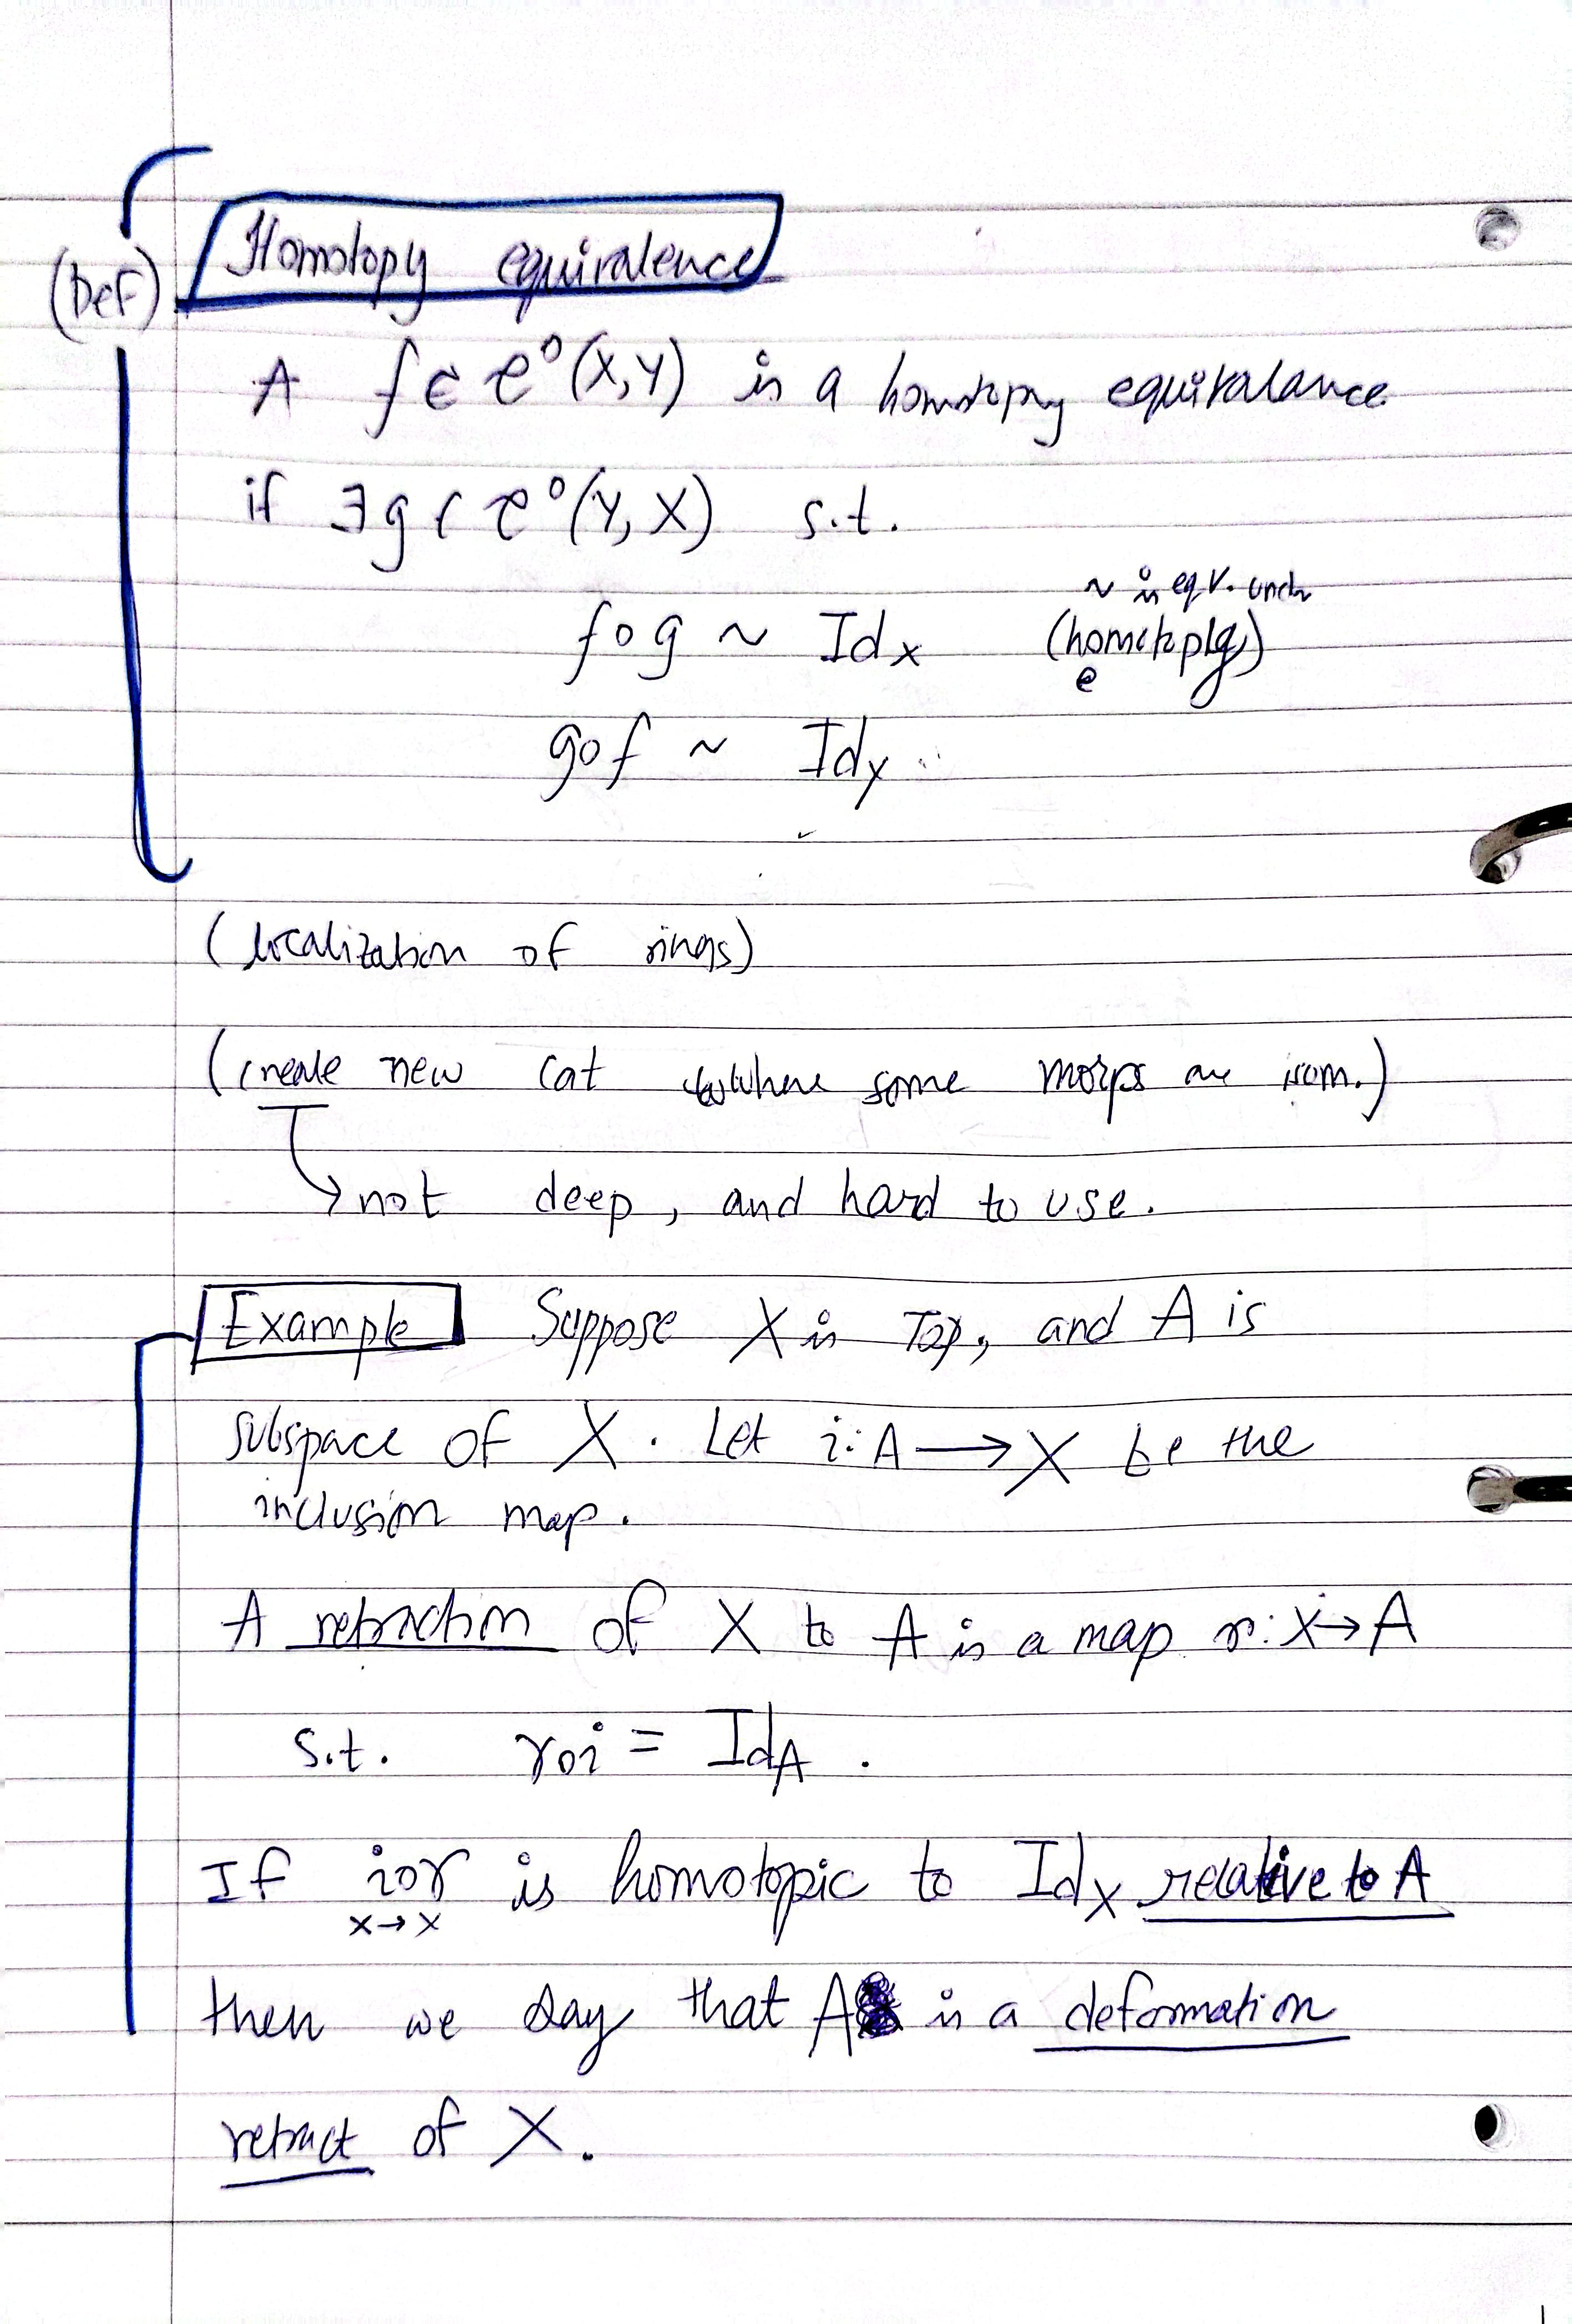 (Def)
Homotopy equivalence
A f ∈ C⁰(X,Y) is a homotopy equivalance
if ∃g ∈ C⁰(Y,X) s.t.
~ is eqv. under
f∘g ~ Id_X (homotoplg)
e
g∘f ~ Id_Y
(localization of rings)
(create new cat where some morps are isom.)
→ not deep, and hard to use.
Example Suppose X is Top, and A is
subspace of X. Let i: A → X be the
inclusion map.
A retraction of X to A is a map r: X → A
s.t. r∘i = Id_A.
If i∘r is homotopic to Id_X relative to A
X → X
then we say that A is a deformation
retract of X.